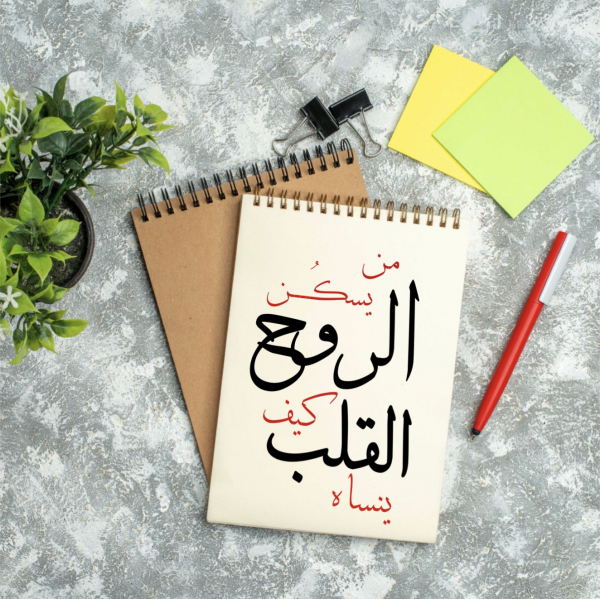 من
يسكُن
الروح
كيف
القلب
ينساه